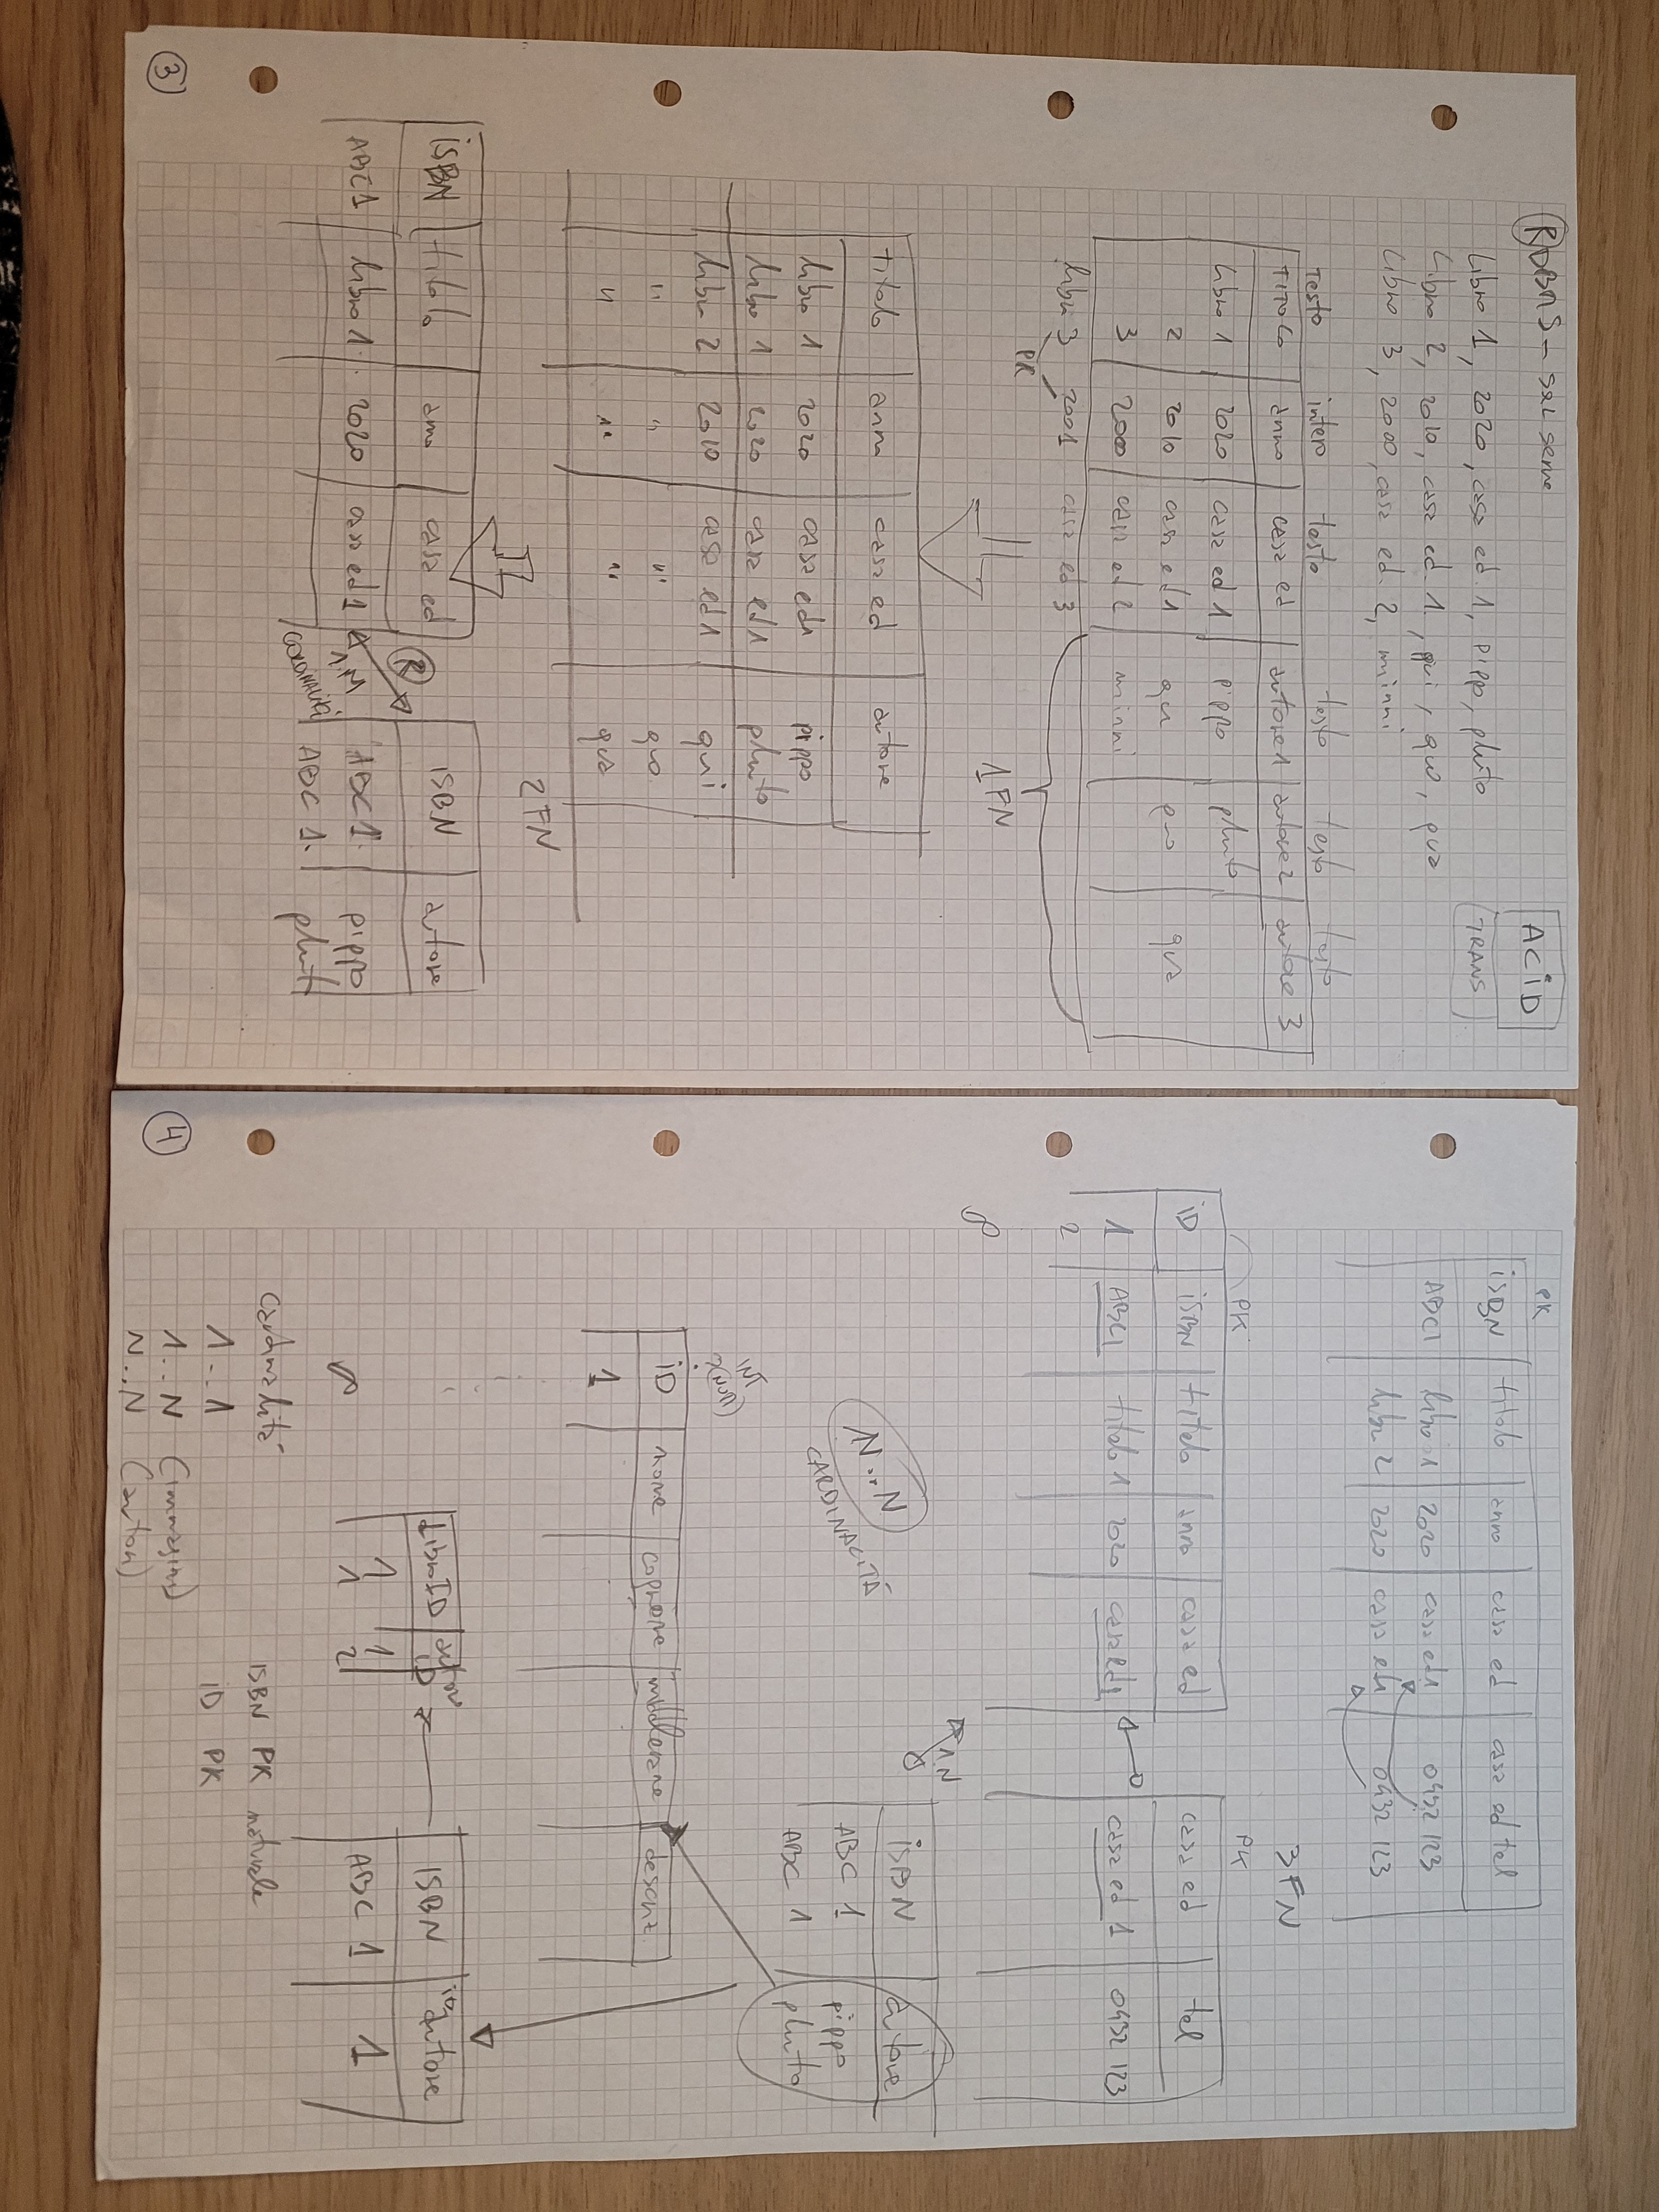 RDBMS - SQL server
ACID
TRANS
Libro 1, 2020, casa ed. 1, pippo, pluto
Libro 2, 2010, casa ed. 1, qui, quo, qua
Libro 3, 2000, casa ed. 2, minni
Testo intero testo testo testo testo
TITOLO anno casa ed autore1 autore2 autore 3
libro 1 2020 casa ed 1 pippo pluto
2 2010 casa ed1 qui quo qua
3 2000 casa ed 2 minni
libro 3 2001 casa ed 3
PK
1FN
titolo anno casa ed autore
libro 1 2020 casa ed1 pippo
libro 1 2020 casa ed1 pluto
libro 2 2010 casa ed1 qui
" " " quo
" " " qua
2FN
ISBN titolo anno casa ed
ABC1 libro 1 2020 casa ed1
R
1.N
CARDINALITÀ
ISBN autore
ABC 1 pippo
ABC 1 pluto
3
PK
ISBN titolo anno casa ed casa ed tel
ABC1 libro 1 2020 casa ed1 0432 123
libro 2 2020 casa ed1 0432 123
3FN
PK
ID ISBN titolo anno casa ed
1 ABC1 titolo 1 2020 casa ed1
2
∞
PK
casa ed tel
casa ed 1 0432 123
1.N
N..N
CARDINALITÁ
ISBN autore
ABC 1 pippo
ABC 1 pluto
INT
(NUM)
ID nome cognome middlename descriz.
1
∞
LibroID autore ID
1 1
1 2
ISBN ID autore
ABC 1 1
Cardinalità
1..1
1..N (immagini)
N..N (autori)
ISBN PK naturale
ID PK
4